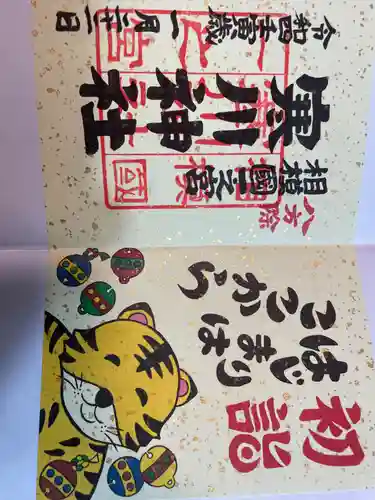 八方除
相模國一之宮
寒川神社
令和四壬寅歳
初詣
はじまりは
ここから